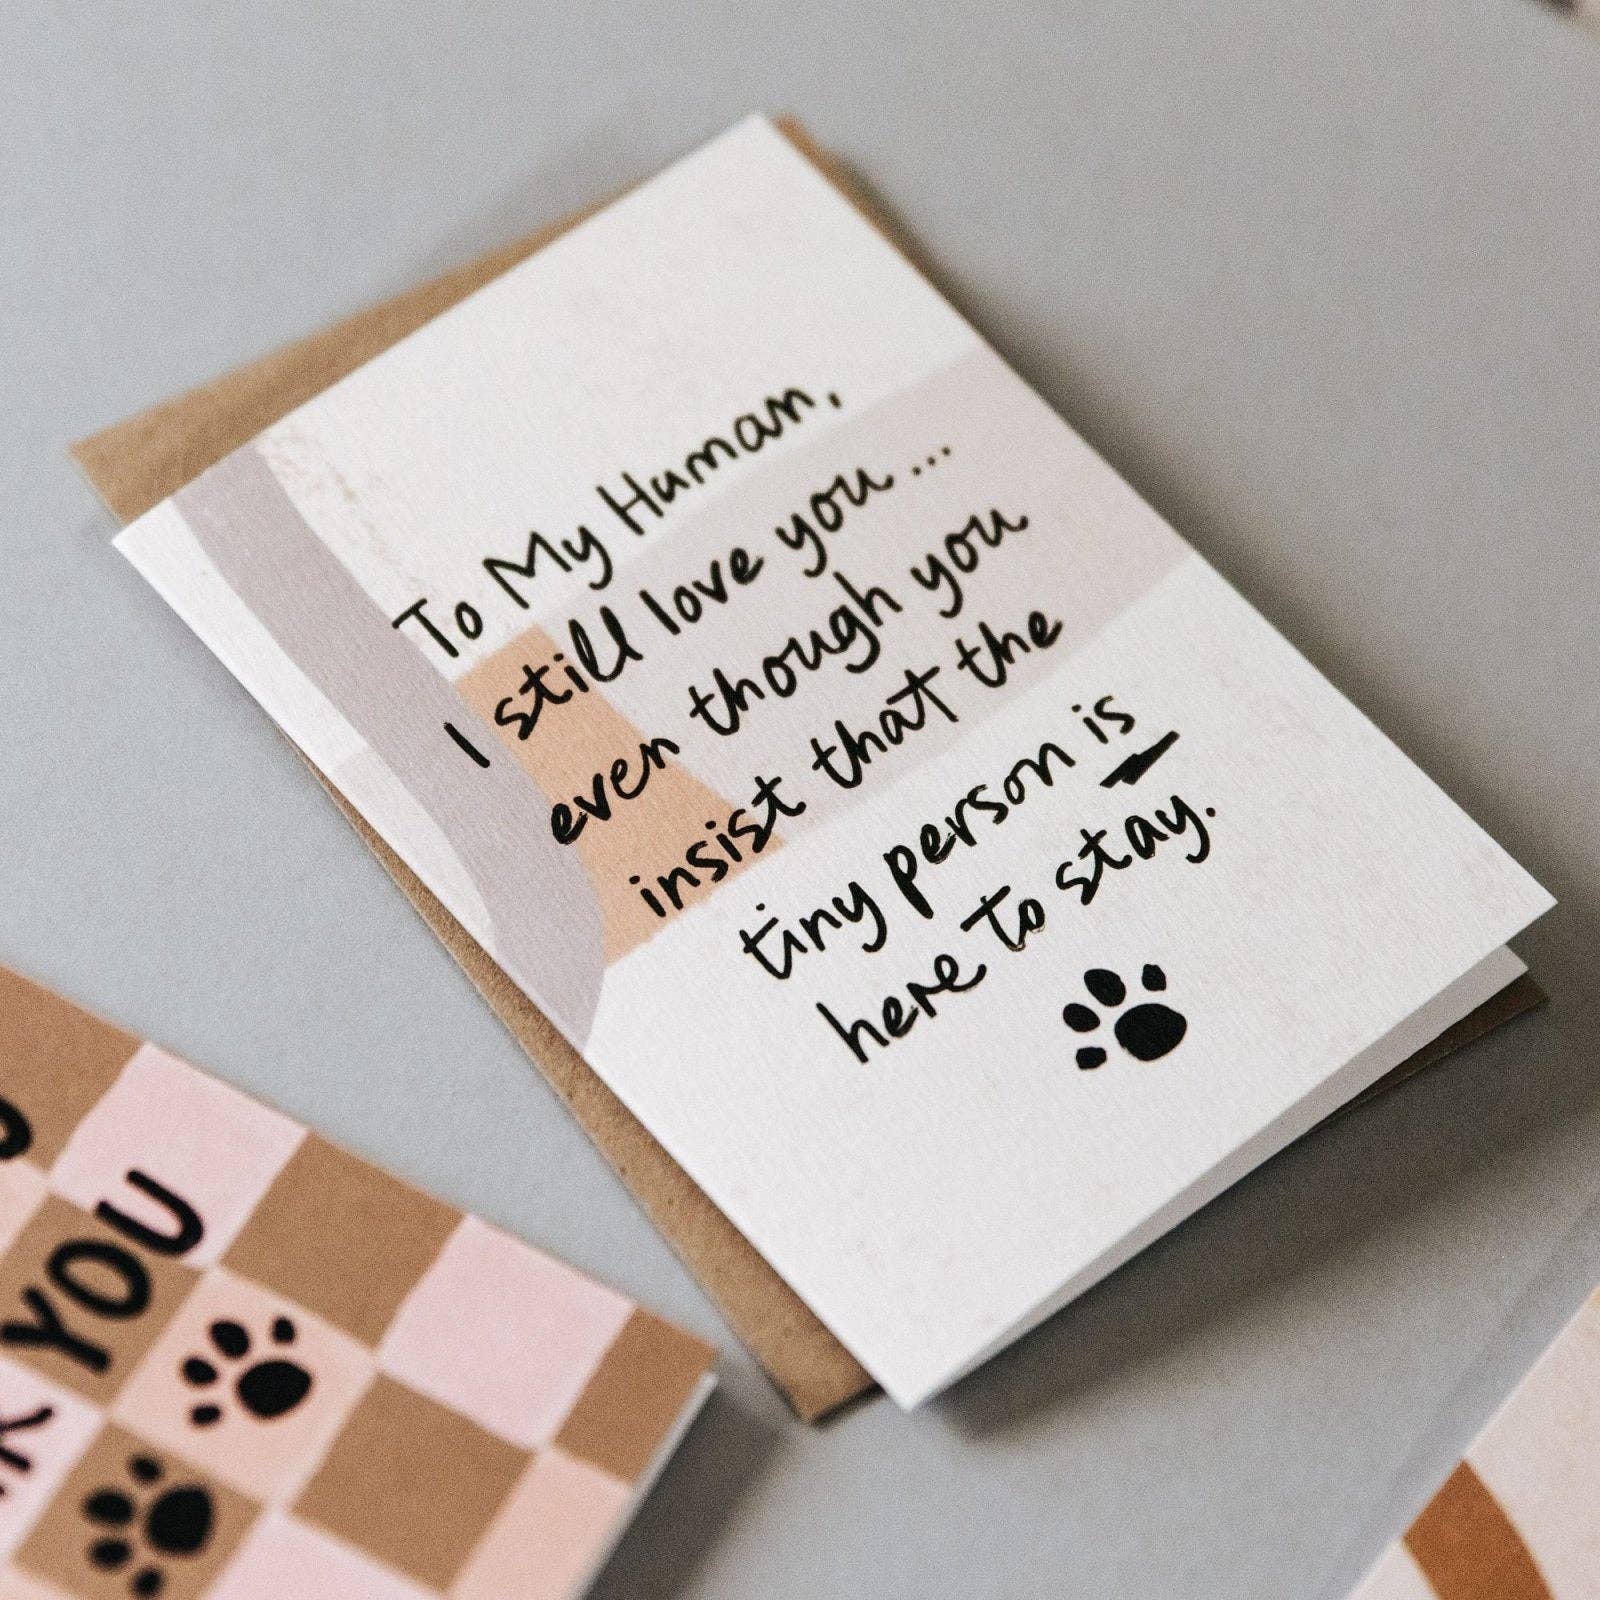 To My Human,
I still love you...
even though you
insist that the
tiny person is
here to stay.
YOU